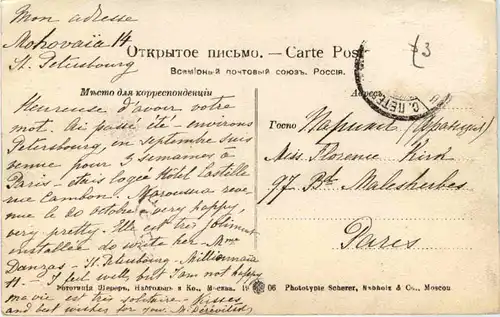 Mon adresse
Mohovaïa 14
St. Petersbourg
Открытое письмо. — Carte Post
Всемірный почтовый союзъ. Россія.
Мѣсто для корреспонденціи
Адрес
С. ПЕТЕ
3
Heureuse d'avoir votre
mot. Ai passé été environs
Petersbourg, en septembre suis
venue pour 3 semaines à
Paris – étais logée Hôtel Castille
rue Cambon. Maroussia reve
nue le 20 october very happy,
very pretty. Elle est très joliment
installée do write her – Mme
Danzas – St. Petersbourg – Millionnaia
11 – I feel well but I am not happy
ma vie est très solitaire – Kisses
and best wishes for you.
Госпо
Парижъ (Франція)
Miss. Florence Kird
97 Bd. Malesherbes
Paris
Фототипія Шереръ, Набгольцъ и Ко., Москва. 19 06 Phototypie Scherer, Nabholz & Co., Moscou